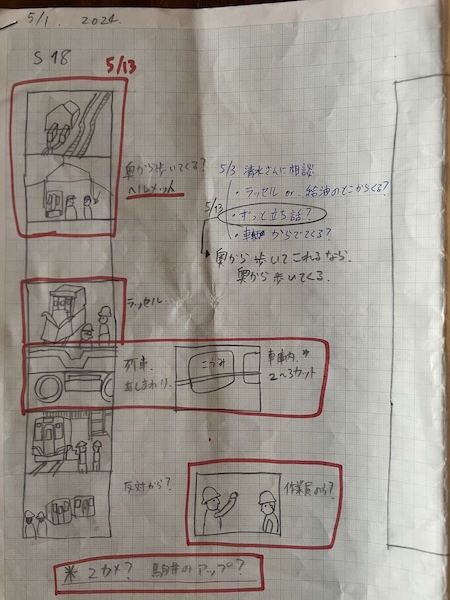 5/1. 2024.
S 18
5/13
奥から歩いてくる?
ヘルメット
5/3 清水さんに相談
・ラッセル or 給油のどこからくる?
5/13
・ずっと立ち話?
・車庫からでてくる?
奥から歩いてこれるなら、
奥から歩いてくる.
ラッセル.
列車.
あしまわり.
こうみ
車車内. *
2〜3カット
反対から?
作業員のみ?
* 2カメ? 駒井のアップ?